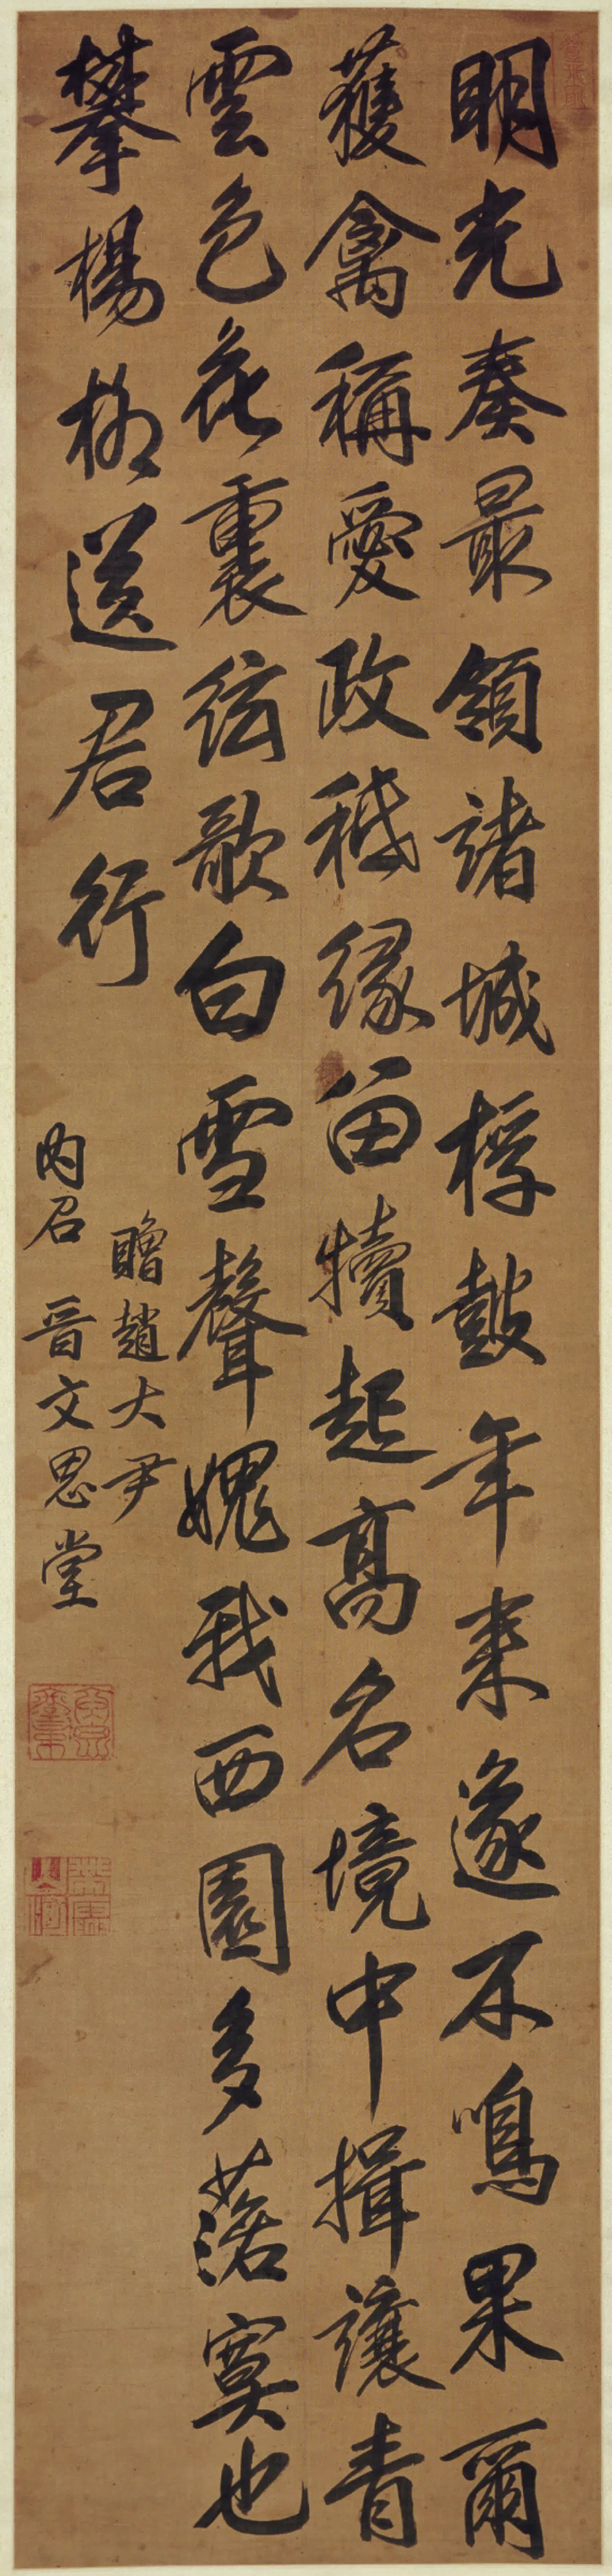 明光奏最領諸城桴鼓年來遂不鳴果爾
獲禽稱愛政秪緣留犢起高名境中揖讓青
雲色花裏絃歌白雪聲媿我西園多落寞也
攀楊柳送君行
贈趙大尹
內召 晉文思堂